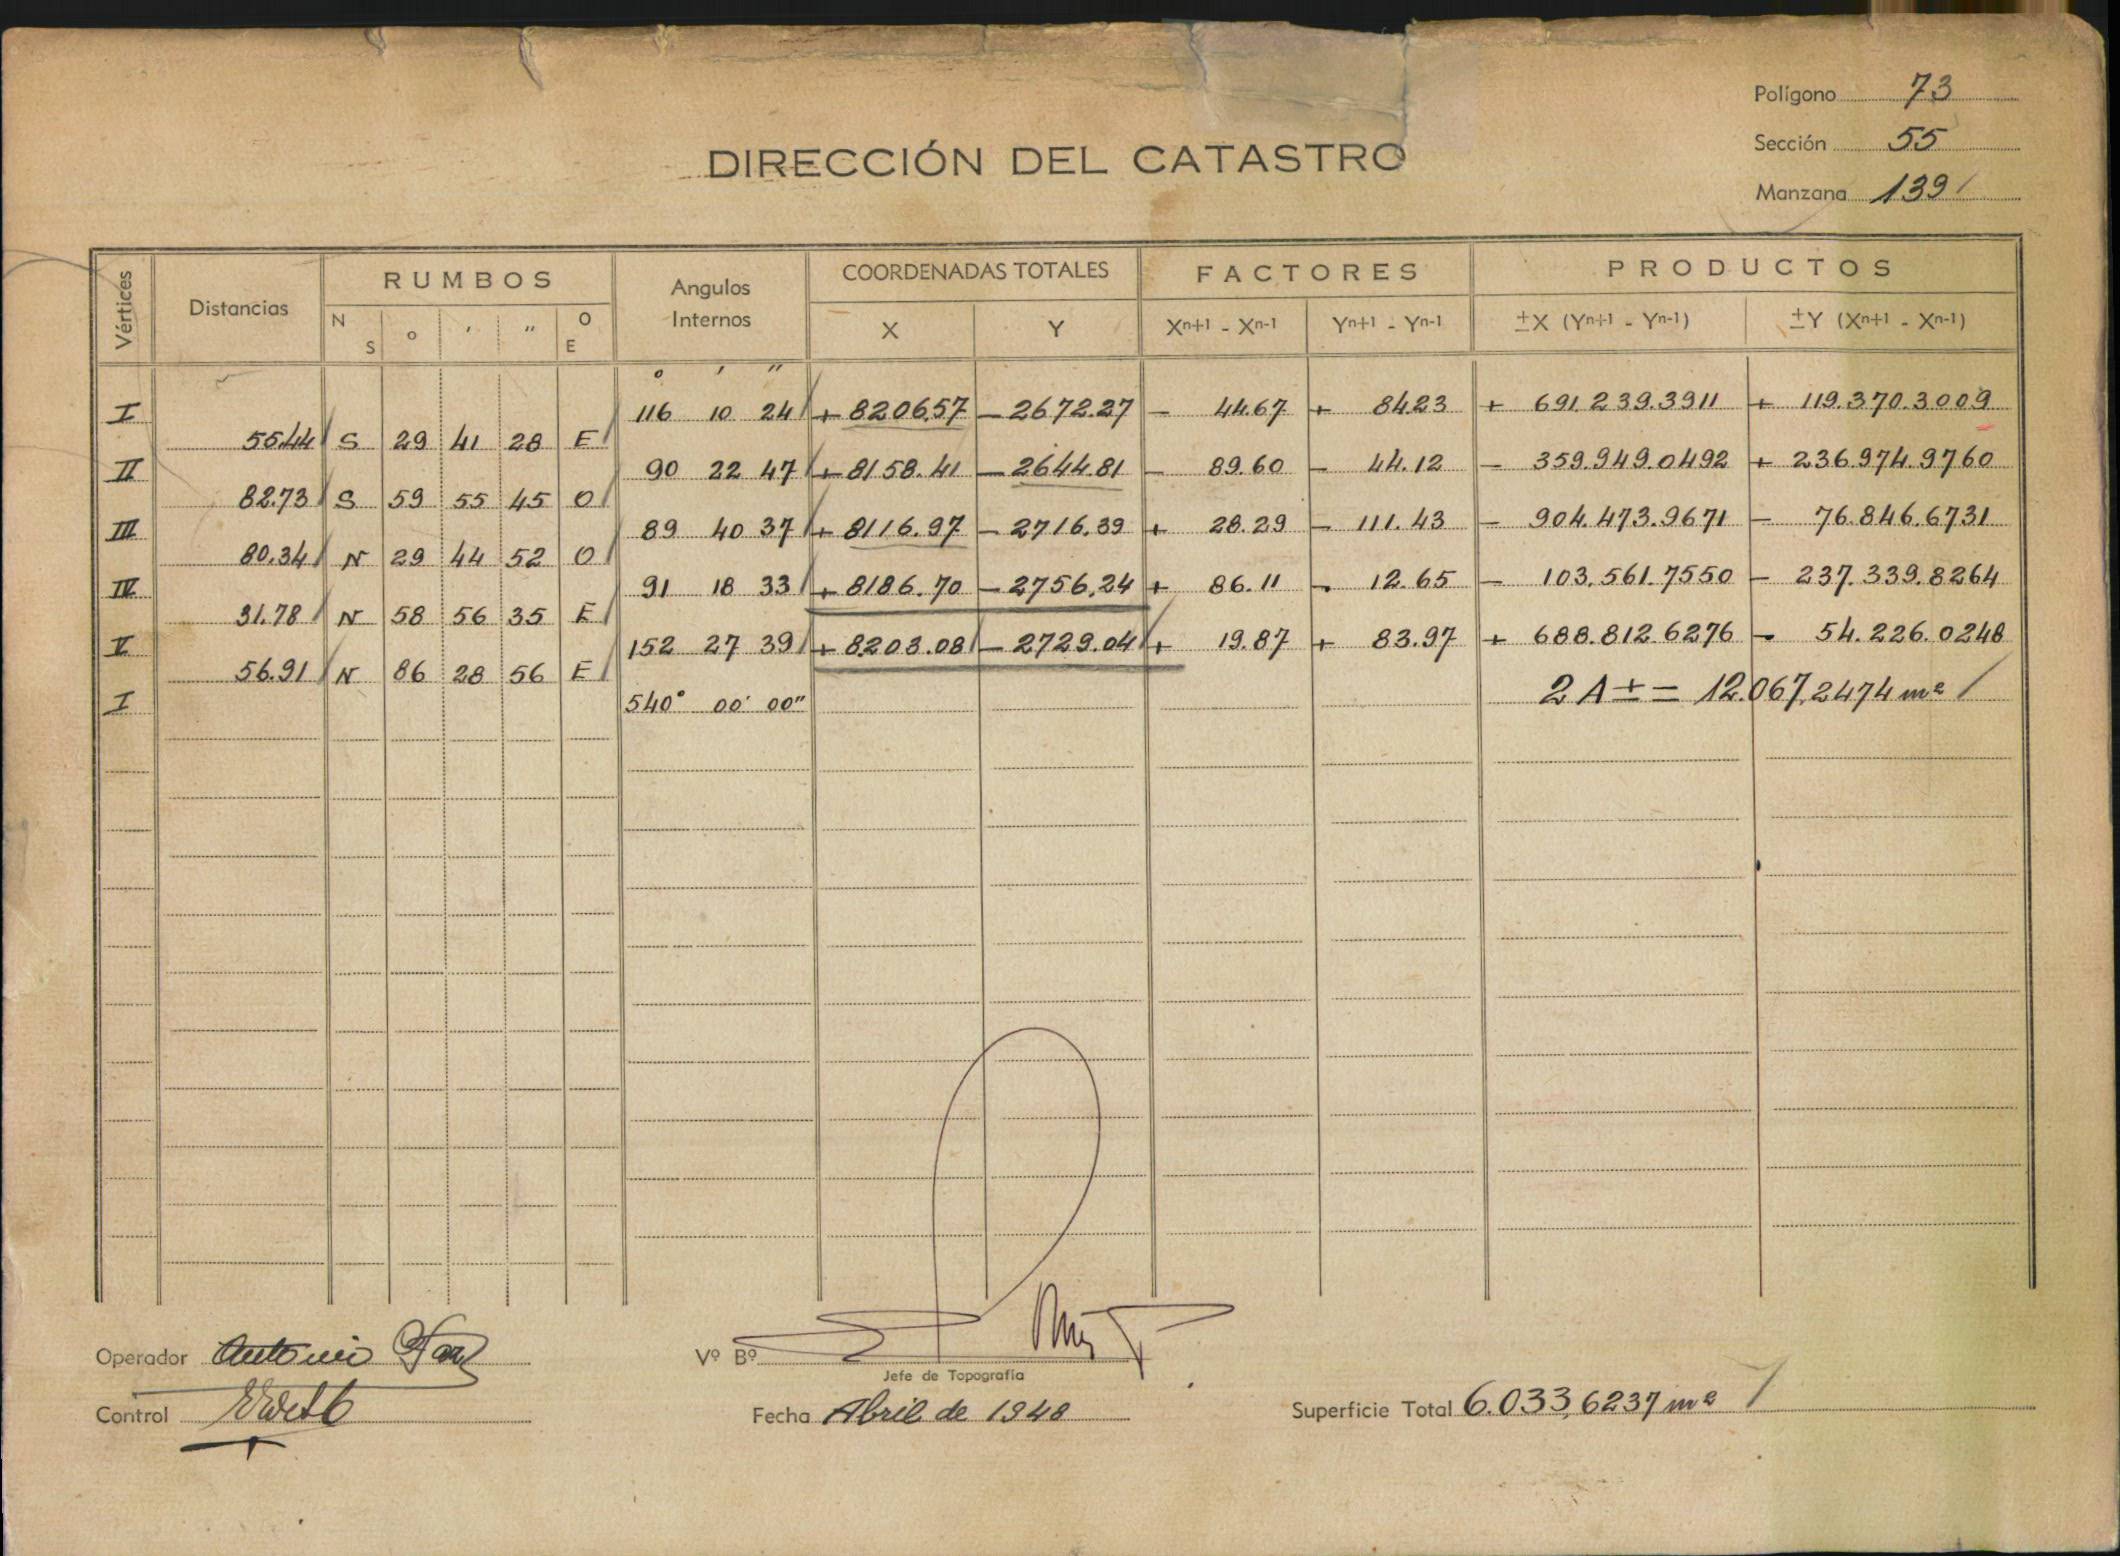 Polígono 73
Sección 55
DIRECCIÓN DEL CATASTRO
Manzana 139
Vértices Distancias RUMBOS N S o ' " O E Angulos Internos COORDENADAS TOTALES X Y FACTORES Xn+1 - Xn-1 Yn+1 - Yn-1 PRODUCTOS ±X (Yn+1 - Yn-1) ±Y (Xn+1 - Xn-1)
o ' "
I 116 10 24 + 8206.57 - 2672.27 - 44.67 + 84.23 + 691.239.3911 + 119.370.3009
55.44 S 29 41 28 E
II 90 22 47 + 8158.41 - 2644.81 - 89.60 - 44.12 - 359.949.0492 + 236.974.9760
82.73 S 59 55 45 O
III 89 40 37 + 8116.97 - 2716.39 + 28.29 - 111.43 - 904.473.9671 - 76.846.6731
80.34 N 29 44 52 O
IV 91 18 33 + 8186.70 - 2756.24 + 86.11 - 12.65 - 103.561.7550 - 237.339.8264
31.78 N 58 56 35 E
V 152 27 39 + 8203.08 - 2729.04 + 19.87 + 83.97 + 688.812.6276 - 54.226.0248
56.91 N 86 28 56 E
I 540° 00' 00" 2A ± = 12.067,2474 m2
Operador Antonio
Vº Bº
Jefe de Topografía
Control
Fecha Abril de 1948
Superficie Total 6.033,6237 m2